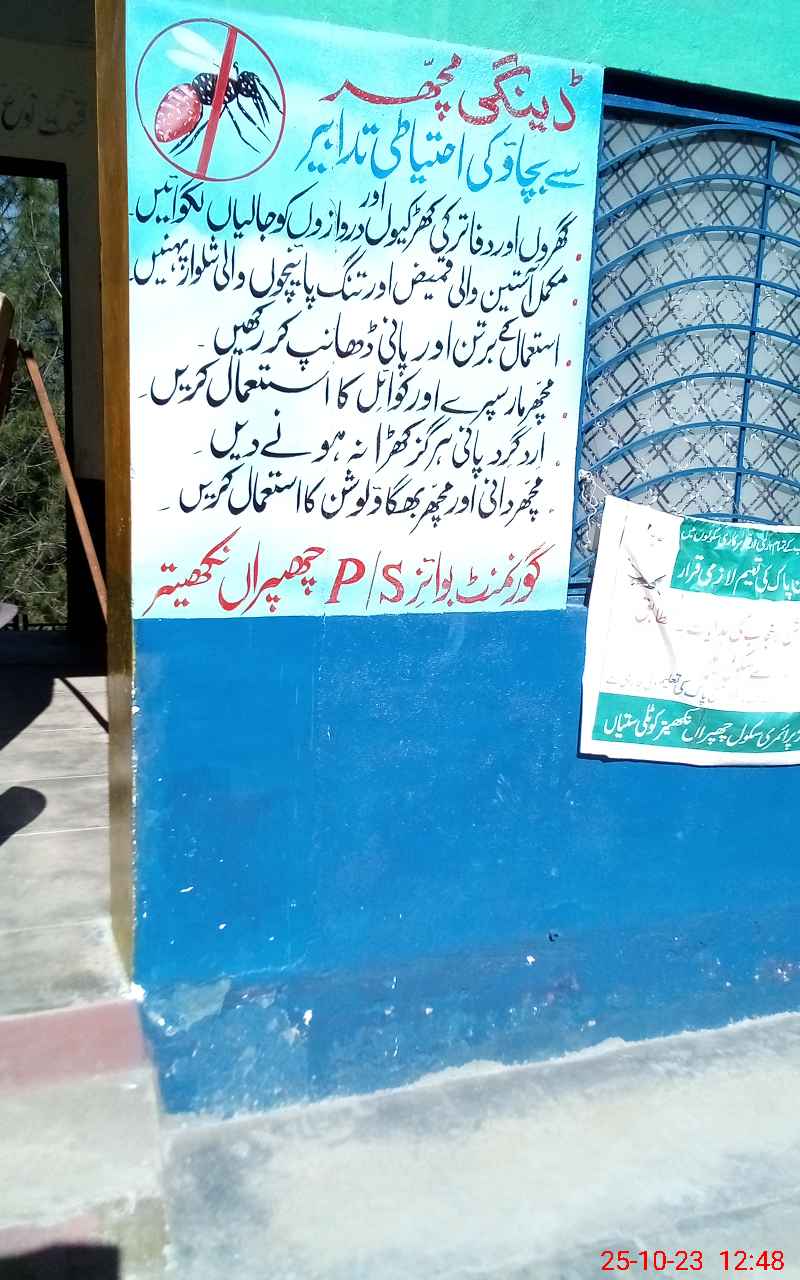 ڈینگی مچھّر
سے بچاؤ کی احتیاطی تدابیر
گھروں اور دفاتر کی کھڑکیوں اور دروازوں کو جالیاں لگوائیں۔
مکمل آستین والی قمیض اور تنگ پائنچوں والی شلوار پہنیں۔
استعمال کے برتن اور پانی ڈھانپ کر رکھیں۔
مچھّر مار سپرے اور کوائل کا استعمال کریں۔
ارد گرد پانی ہرگز کھڑا نہ ہونے دیں۔
مچھّر دانی اور مچھّر بھگاؤ لوشن کا استعمال کریں۔
گورنمنٹ بوائز P/S چھپراں نکھیتر
کے تمام سرکاری سکولوں میں
پاک کی تعلیم لازمی قرار
کی ہدایت
پرائمری سکول چھپراں نکھیتر کوٹلی ستیاں
25-10-23 12:48